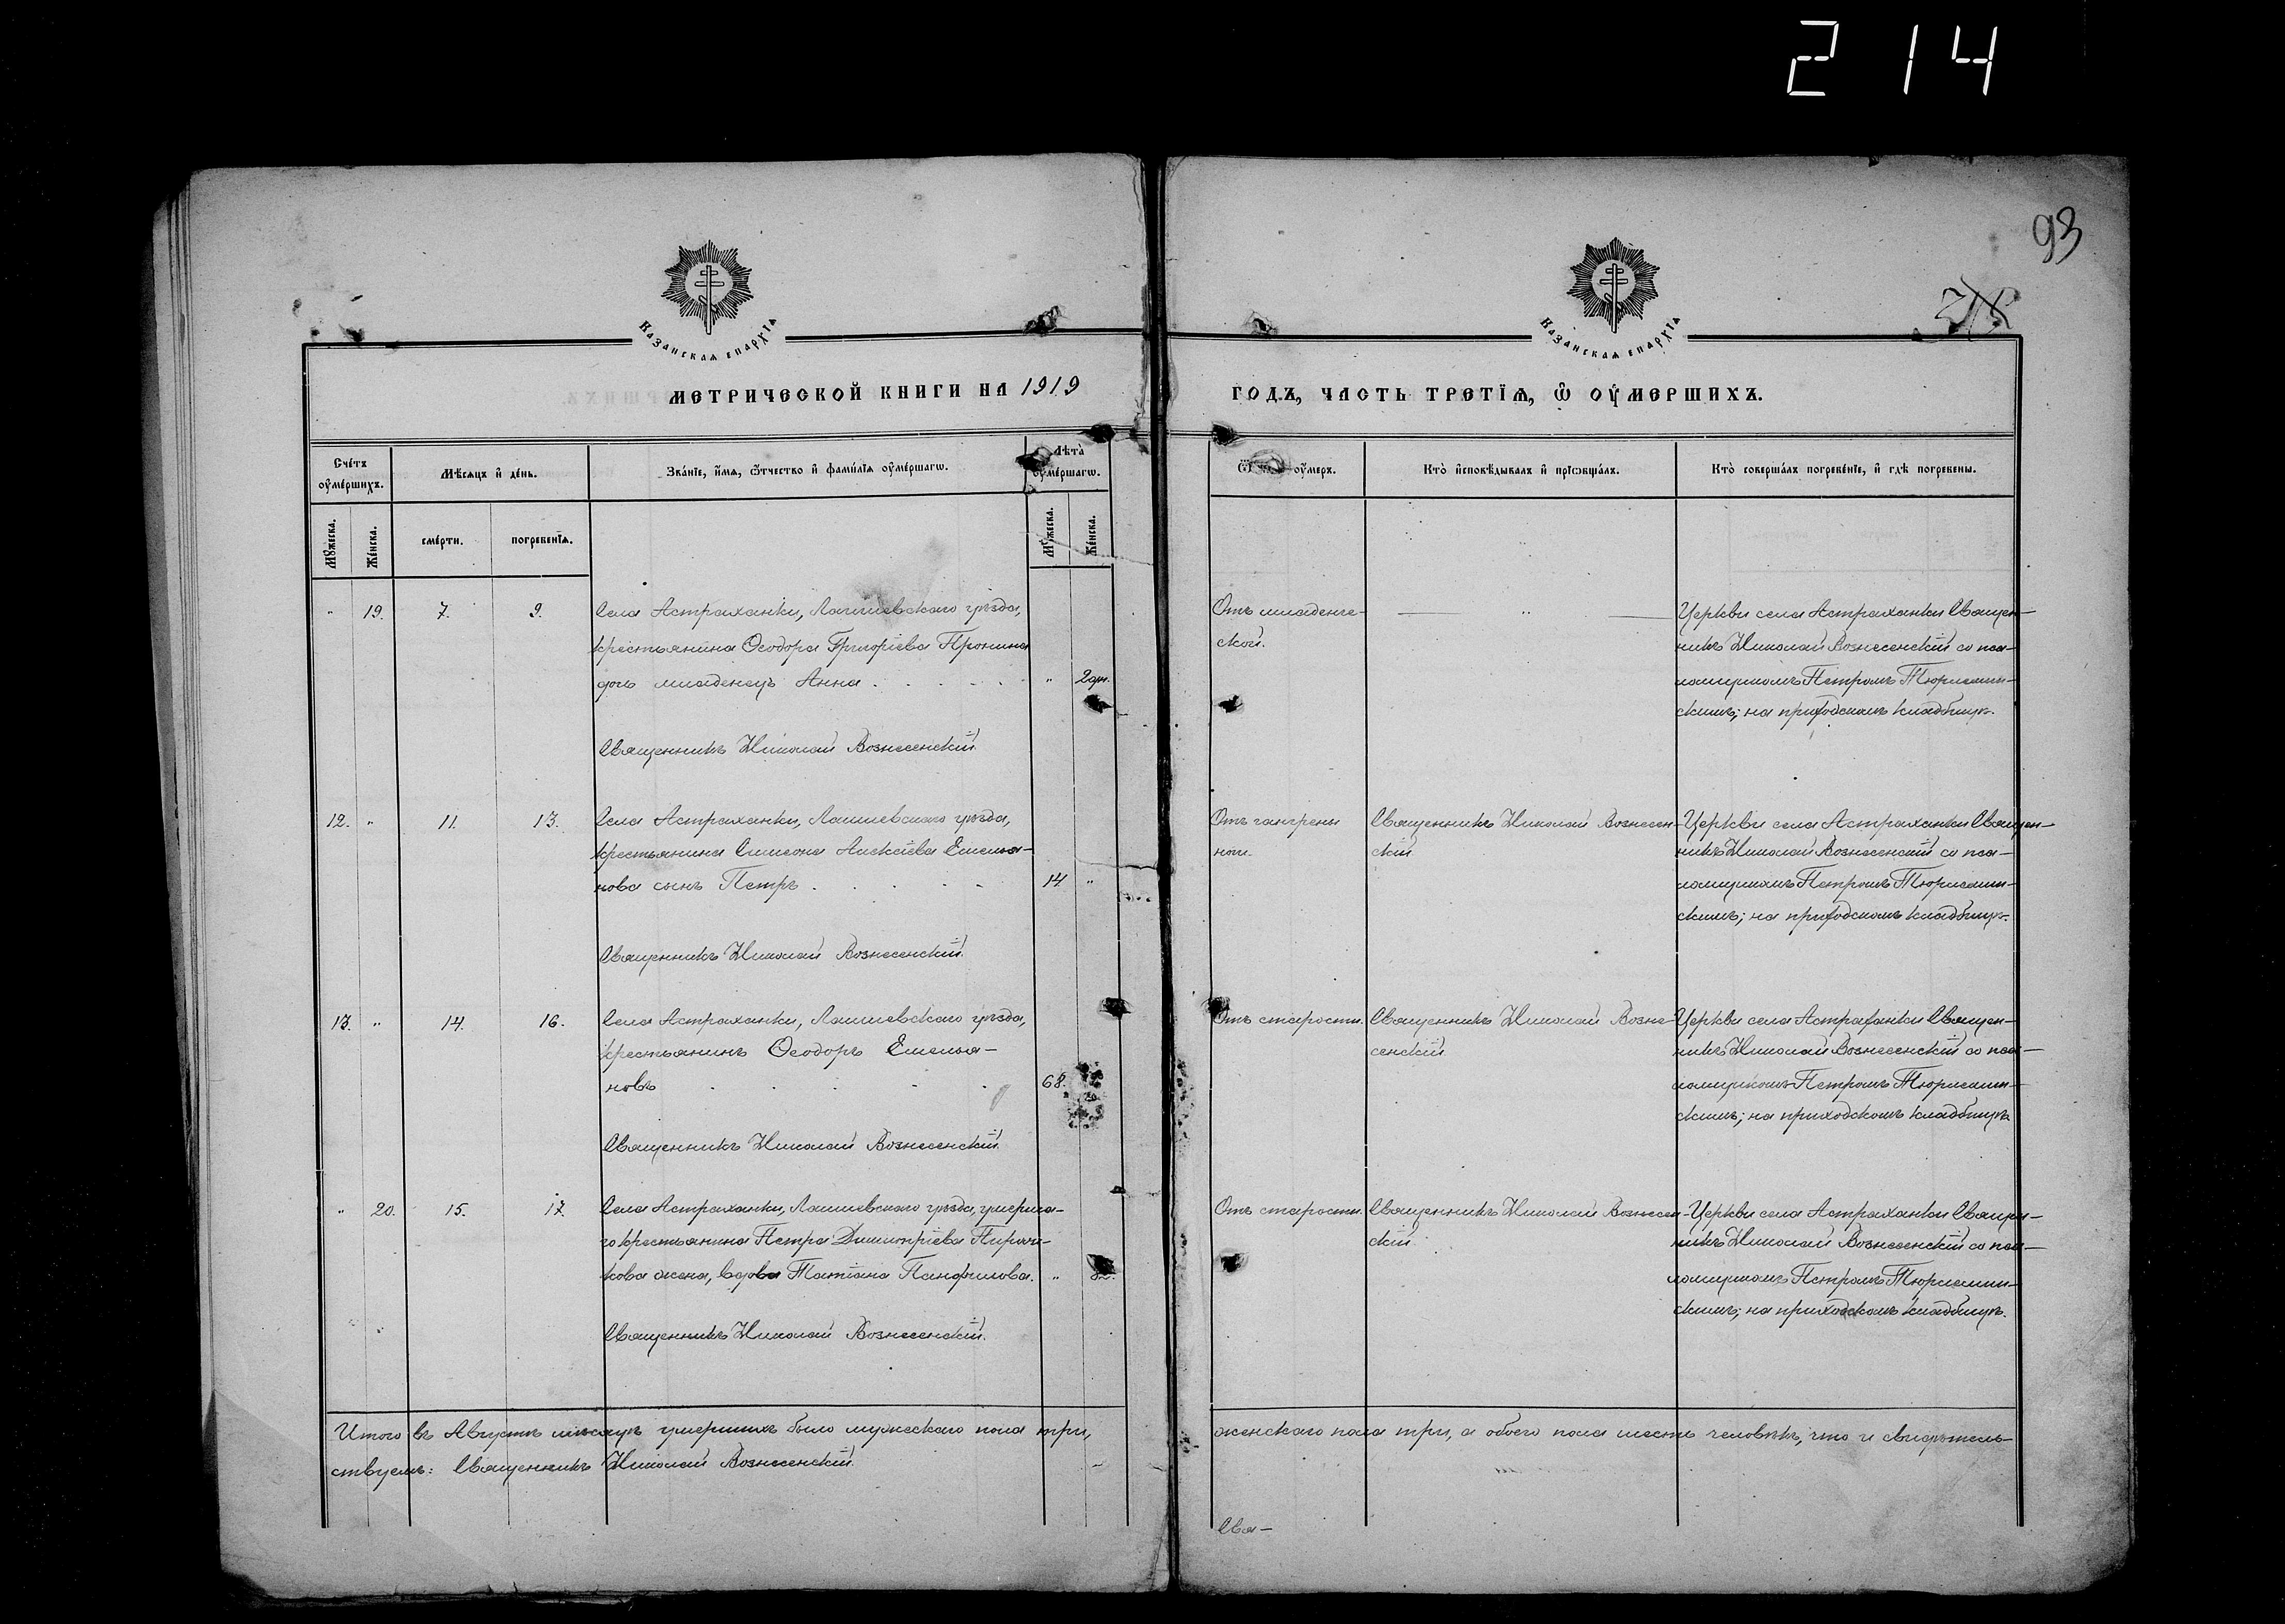 214
93
КАЗАНСКАѦ ЕПАРХІѦ
КАЗАНСКАѦ ЕПАРХІѦ
МЕТРИЧЕСКОЙ КНИГИ НА 1919
ГОДЪ, ЧАСТЬ ТРЕТІѦ, Ѡ ОУМЕРШИХЪ.
Сче́тъ оуме́ршихъ.
Мѣсяцъ и де́нь.
Зва́ніе, и́мѧ, ѻ́тчество и фами́лїѧ оуме́ршагѡ.
Лѣта̀ оуме́ршагѡ.
оу́меръ.
Кто̀ и҆сповѣ́дывалъ и҆ прїѡбща́лъ.
Кто̀ соверша́лъ погребе́нїе, и҆ гдѣ̀ погребены.
Мꙋ́жеска.
Же́нска.
сме́рти.
погребе́нїѧ.
Мꙋ́жеска.
Же́нска.
" 19. 7. 9. Села Астраханки, Лаишевскаго уѣзда,
крестьянина Ѳеодора Григоріева Пронина
дочь младенецъ Анна . . . . . " 2 дн.
Священникъ Николай Вознесенскій
Отъ младенче-
ской.
— " —
Церкви села Астраханки Священ-
никъ Николай Вознесенскій со пса-
ломщикомъ Петромъ
скимъ; на приходскомъ кладбищѣ.
12. " 11. 13. Села Астраханки, Лаишевскаго уѣзда,
крестьянина Симеона Алексіева Емелья-
нова сынъ Петръ . . . . - 14 "
Священникъ Николай Вознесенскій
Отъ гангрены
ноги.
Священникъ Николай Вознесен-
скій
Церкви села Астраханки Священ-
никъ Николай Вознесенскій со пса-
ломщикомъ Петромъ
скимъ; на приходскомъ кладбищѣ.
13. " 14. 16. Села Астраханки, Лаишевскаго уѣзда,
крестьянинъ Ѳеодоръ Емелья-
новъ . . . . . 68.
Священникъ Николай Вознесенскій
Отъ старости.
Священникъ Николай Возне-
сенскій
Церкви села Астраханки Священ-
никъ Николай Вознесенскій со пса-
ломщикомъ Петромъ
скимъ; на приходскомъ кладбищѣ
" 20. 15. 17. Села Астраханки, Лаишевскаго уѣзда, умерша-
го крестьянина Петра Димитріева
кова жена, вдова Татіана Панфилова. "
Священникъ Николай Вознесенскій.
Отъ старости.
Священникъ Николай Вознесен-
скій
Церкви села Астраханки Священ-
никъ Николай Вознесенскій со пса-
ломщикомъ Петромъ
скимъ; на приходскомъ кладбищѣ.
Итого въ Августѣ мѣсяцѣ умершихъ было мужескаго пола три,
женскаго пола три, а обоего пола шесть человѣкъ, что и свидѣтель-
ствуемъ: Священникъ Николай Вознесенскій.
Свя-